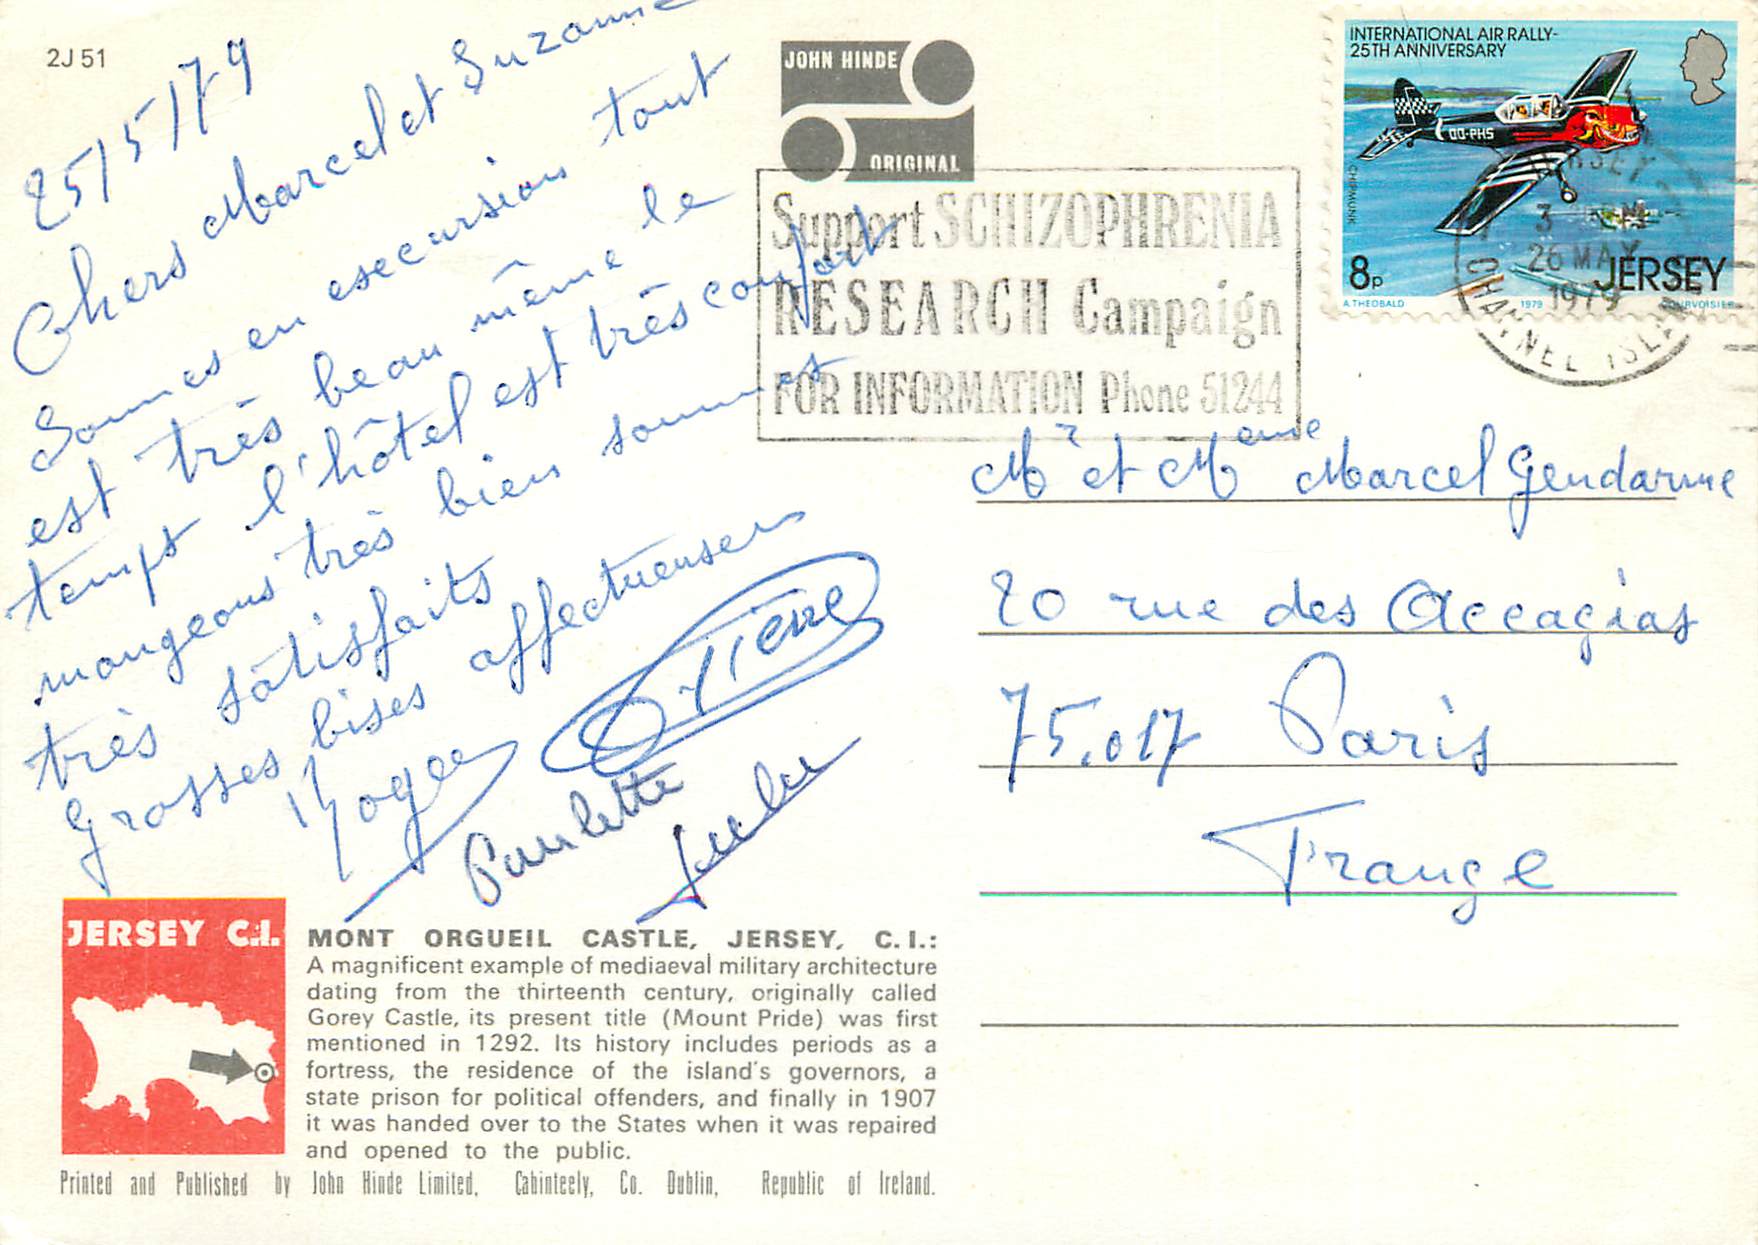 2J 51
25/5/79
Chers Marcel et Suzanne
Sommes en esecursion tout
est très beau même le
temps l'hôtel est très confort
mangeons très bien sommes
très sâtisfaits
Grosses bises affectueuses
Roger
Pierre
Paulette
JOHN HINDE
ORIGINAL
Support SCHIZOPHRENIA
RESEARCH Campaign
FOR INFORMATION Phone 51244
INTERNATIONAL AIR RALLY-
25TH ANNIVERSARY
OO-PHS
CHIPMUNK
8p
JERSEY
A. THEOBALD 1979 COURVOISIER
JERSEY
3
PM
26 MAY
1979
CHANNEL ISLANDS
Mr et Meme Marcel Gendarme
20 rue des Accacias
75.017 Paris
France
JERSEY C.I.
MONT ORGUEIL CASTLE, JERSEY, C.I.:
A magnificent example of mediaeval military architecture
dating from the thirteenth century, originally called
Gorey Castle, its present title (Mount Pride) was first
mentioned in 1292. Its history includes periods as a
fortress, the residence of the island's governors, a
state prison for political offenders, and finally in 1907
it was handed over to the States when it was repaired
and opened to the public.
Printed and Published by John Hinde Limited, Cabinteely, Co. Dublin, Republic of Ireland.